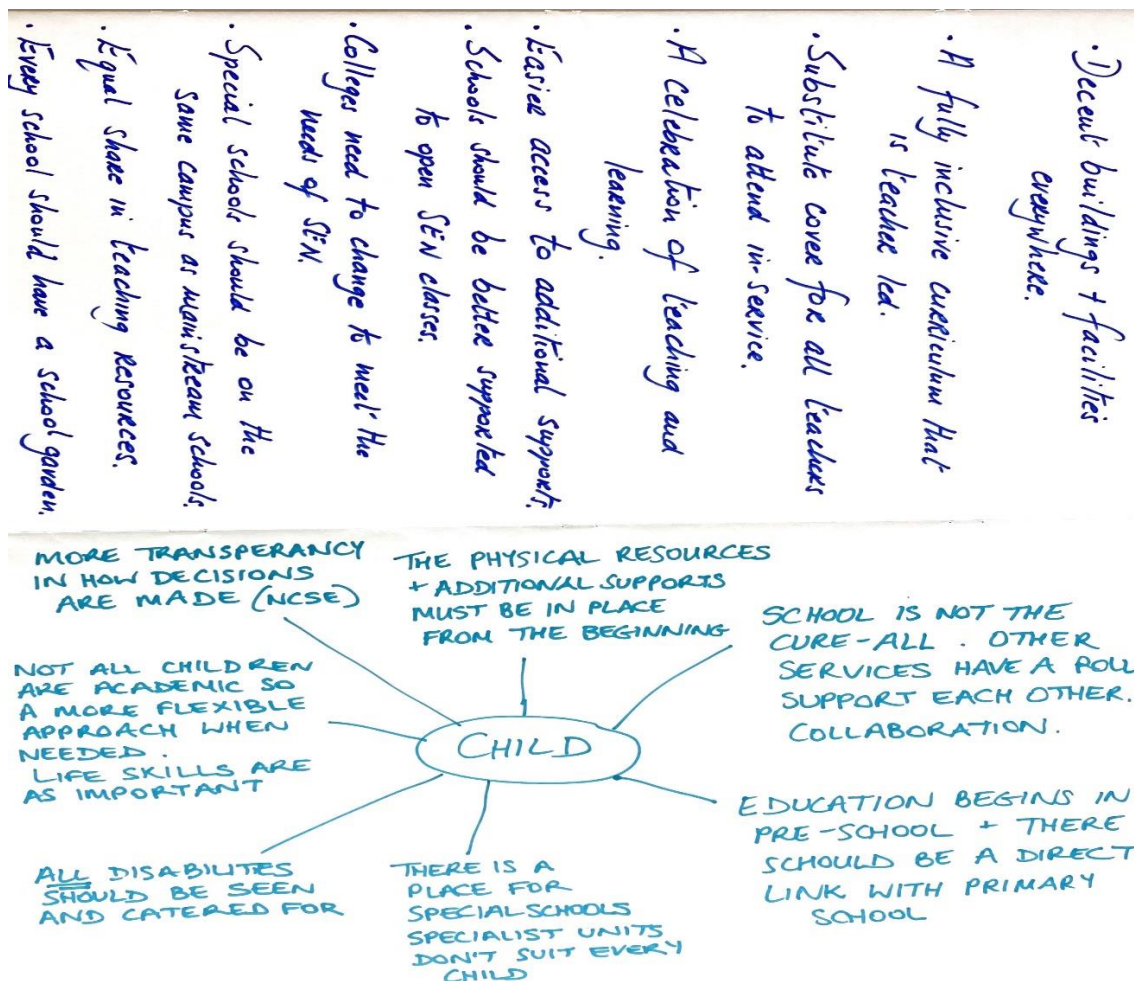 . Decent buildings + facilities
everywhere.
. A fully inclusive curriculum that
is teacher led.
. Substitute cover for all teachers
to attend in-service.
. A celebration of teaching and
learning.
. Easier access to additional supports.
. Schools should be better supported
to open SEN classes.
. Colleges need to change to meet the
needs of SEN.
. Special schools should be on the
same campus as mainstream schools.
. Equal share in teaching resources.
. Every school should have a school garden.
MORE TRANSPERANCY
IN HOW DECISIONS
ARE MADE (NCSE)
THE PHYSICAL RESOURCES
+ ADDITIONAL SUPPORTS
MUST BE IN PLACE
FROM THE BEGINNING
SCHOOL IS NOT THE
CURE-ALL. OTHER
SERVICES HAVE A ROLL
SUPPORT EACH OTHER.
COLLABORATION.
NOT ALL CHILDREN
ARE ACADEMIC SO
A MORE FLEXIBLE
APPROACH WHEN
NEEDED.
LIFE SKILLS ARE
AS IMPORTANT
CHILD
EDUCATION BEGINS IN
PRE-SCHOOL + THERE
SCHOULD BE A DIRECT
LINK WITH PRIMARY
SCHOOL
ALL DISABILITES
SHOULD BE SEEN
AND CATERED FOR
THERE IS A
PLACE FOR
SPECIAL SCHOOLS
SPECIALIST UNITS
DON'T SUIT EVERY
CHILD